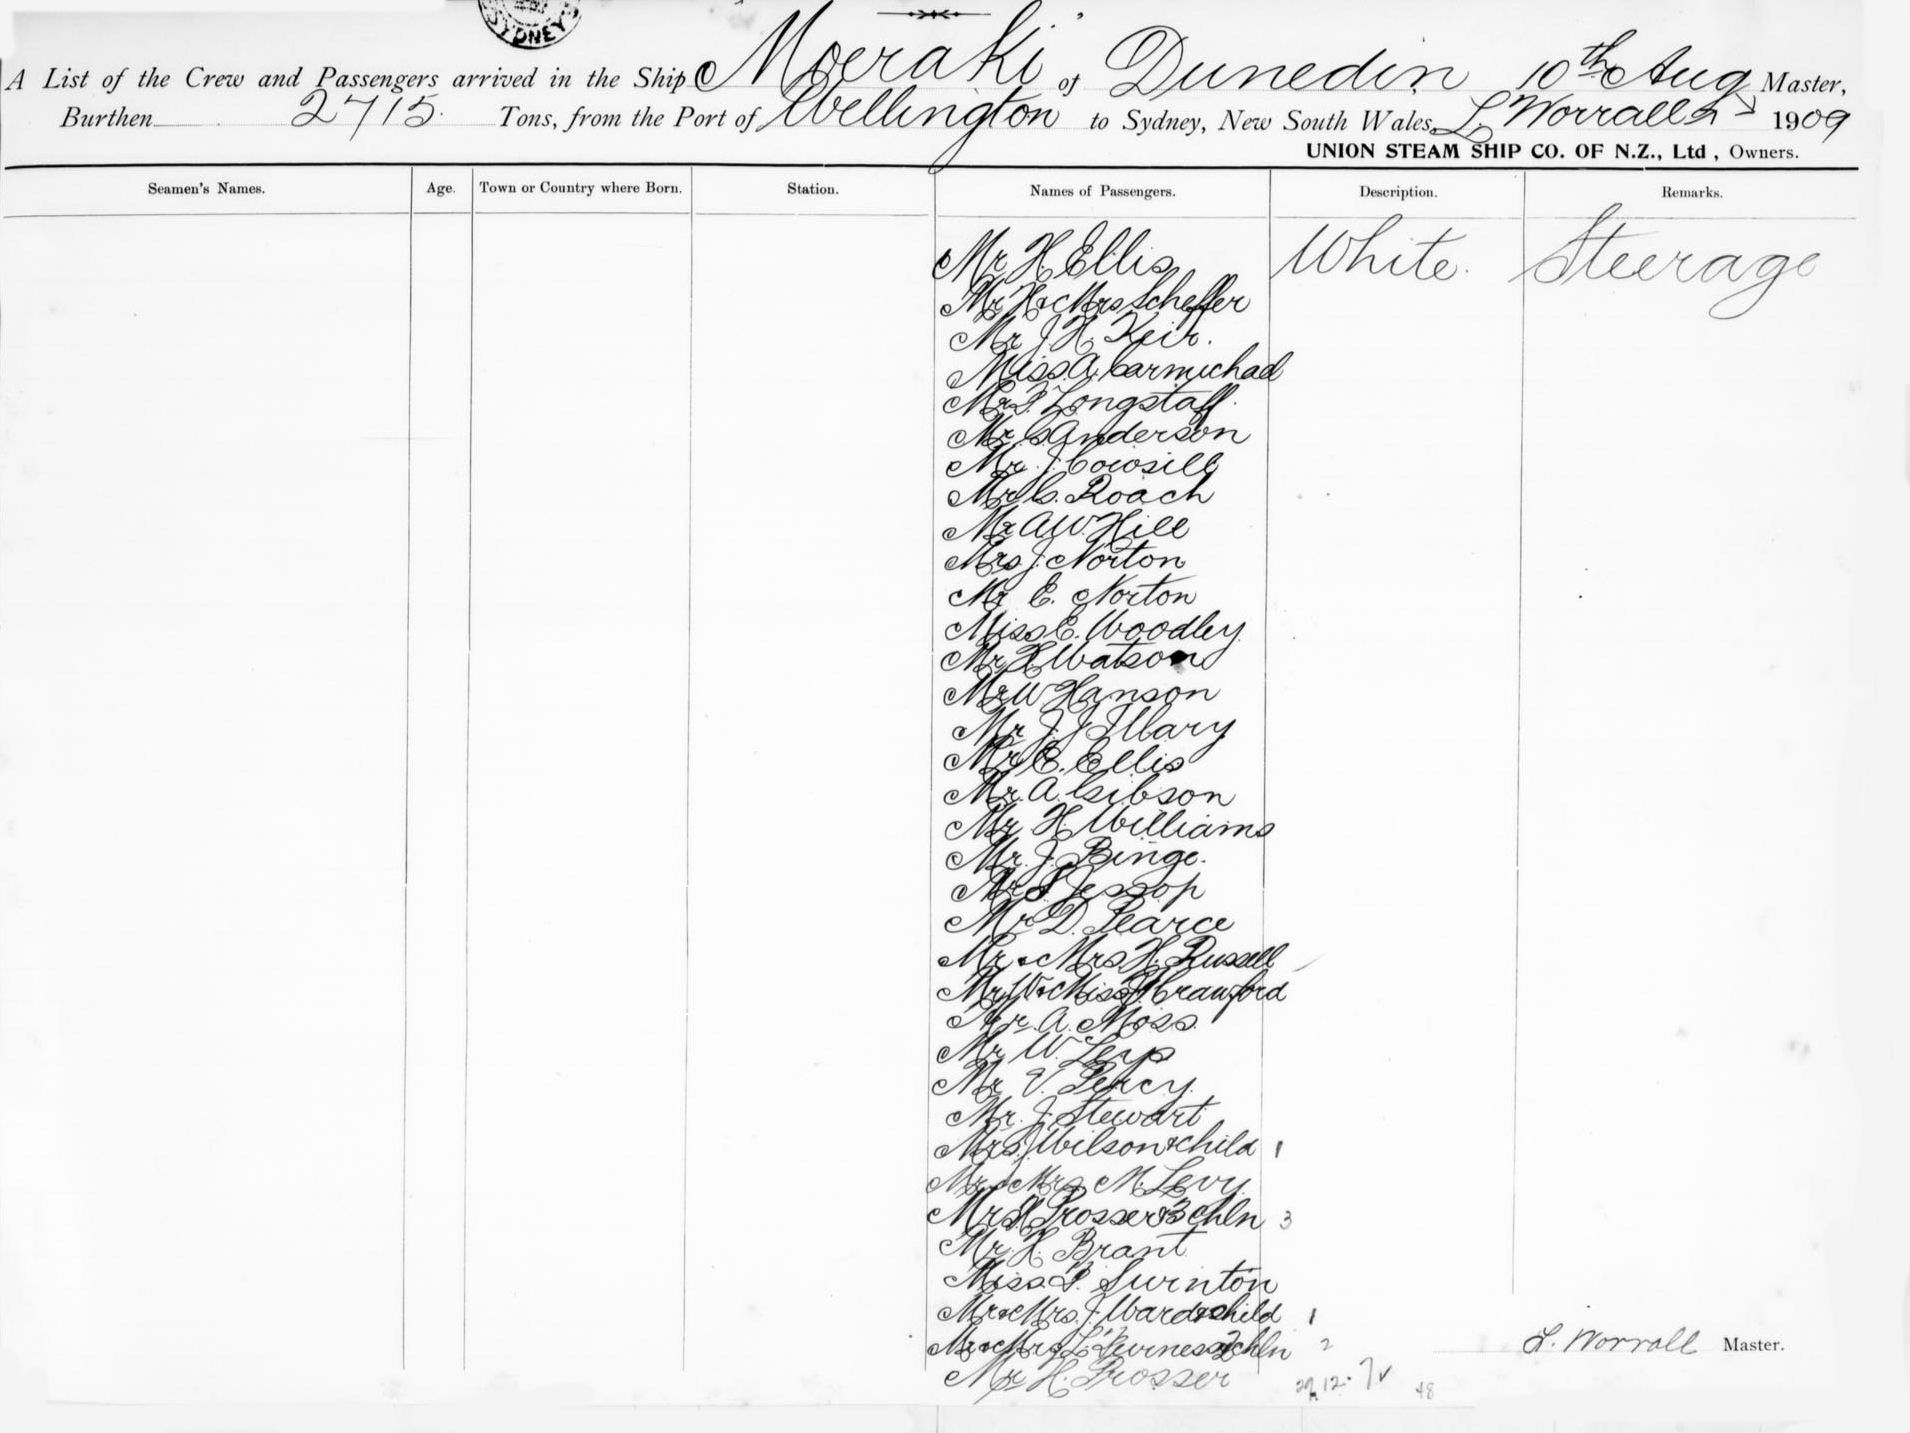 SYDNEY
A List of the Crew and Passengers arrived in the Ship Moeraki of Dunedin 10th Aug Master,
Burthen 2715 Tons, from the Port of Wellington to Sydney, New South Wales, L. Worrall 1909
UNION STEAM SHIP CO. OF N.Z., Ltd, Owners.
Seamen's Names. Age. Town or Country where Born. Station. Names of Passengers. Description. Remarks.
Mr H. Ellis White. Steerage
Mr H & Mrs Scheffer
Mr J H Keir.
Miss A. Carmichael
Longstaff.
Mr Anderson
Mr J. Cowsill
Mr C. Roach
Mr A W Hill
Mrs J. Norton
Mr E. Norton
Miss E. Woodley
Mr H Watson
Mr W Hanson
Mr J. J.
Mr E. Ellis
Mr A. Gibson
Mr H. Williams
Mr. J. Binge.
Mr Jessop
Mr D. Pearce
Mr & Mrs H. Russell
Mr W & Miss Crawford
Mr A. Moss.
Mr W.
Mr V. Percy.
Mr. J. Stewart
Mrs J Wilson & child 1
Mr & Mrs M. Levy
Prosser & 3 chln 3
Mr H. Brant
Miss Swinton
Mr & Mrs. J. Ward & child 1
Mr & Mrs 2 chln 2
L. Worrall Master.
Mr H. Prosser 29. 12. 7 48